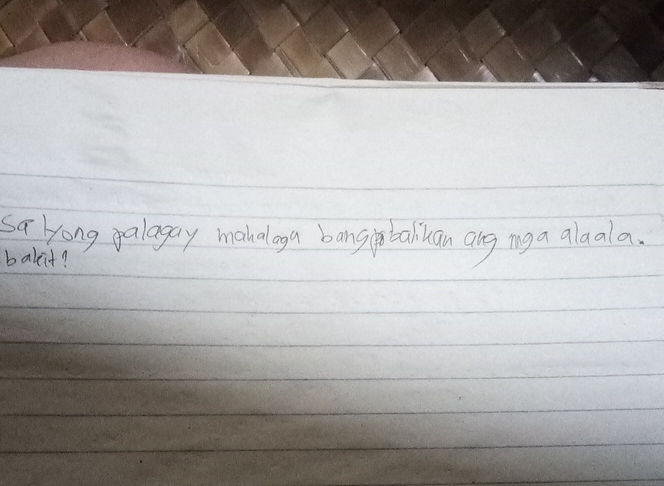 sa iyong palagay mahalaga bang balikan ang mga alaala.
bakit?